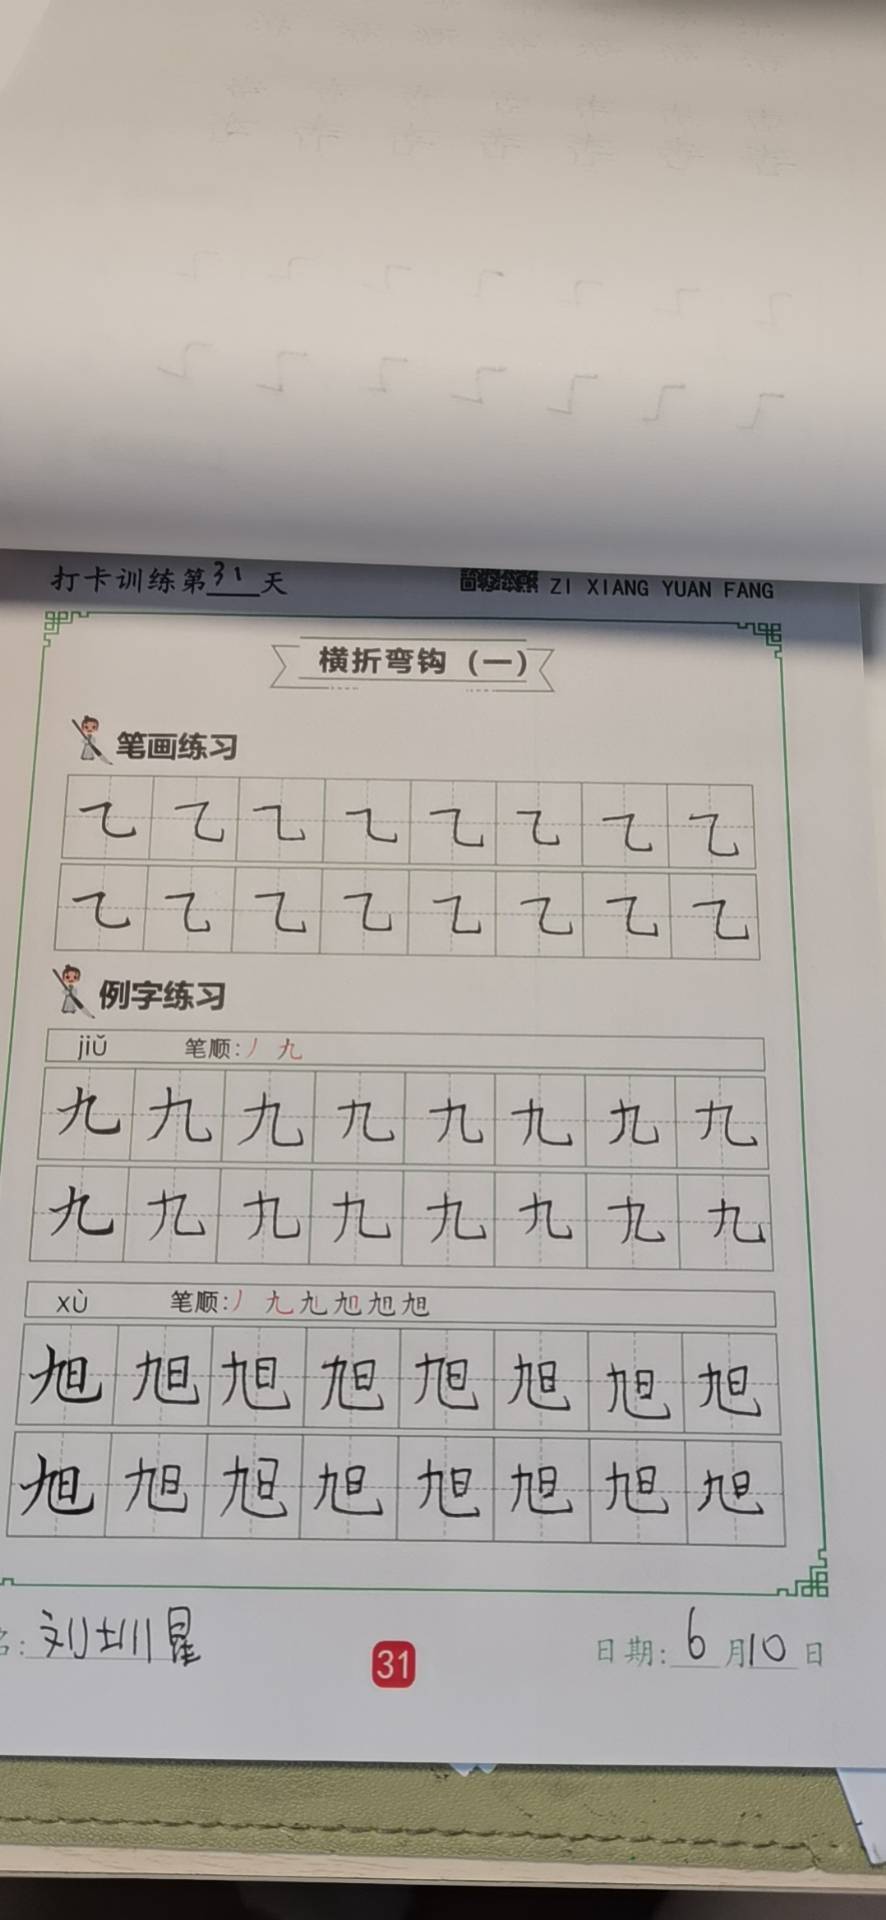 打卡训练第31天
ZI XIANG YUAN FANG
横折弯钩（一）
笔画练习
㇈ ㇈ ㇈ ㇈ ㇈ ㇈ ㇈ ㇈
㇈ ㇈ ㇈ ㇈ ㇈ ㇈ ㇈ ㇈
例字练习
jiǔ 笔顺:丿 九
九 九 九 九 九 九 九 九
九 九 九 九 九 九 九 九
xù 笔顺:丿 九 旭
旭 旭 旭 旭 旭 旭 旭 旭
旭 旭 旭 旭 旭 旭 旭 旭
名:刘圳星
31
日期:6月10日